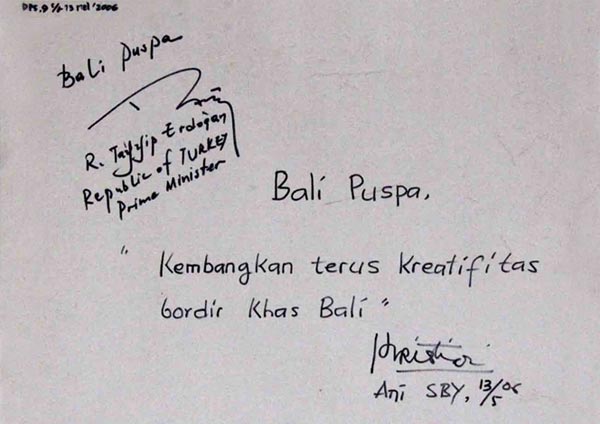 DPS. 9 s/d 13 mei '2006
Bali Puspa
R. Tayyip Erdoğan
Republic of TURKEY
Prime Minister
Bali Puspa,
" Kembangkan terus kreatifitas
bordir khas Bali "
Ani SBY, 13/5 06